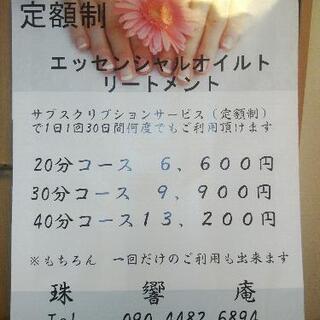 定額制
エッセンシャルオイルト
リートメント
サブスクリプションサービス(定額制)
で1日1回30日間何度でもご利用頂けます
20分コース 6,600円
30分コース 9,900円
40分コース13,200円
※もちろん 一回だけのご利用も出来ます
珠 響 庵
Tel 090 4482 6894